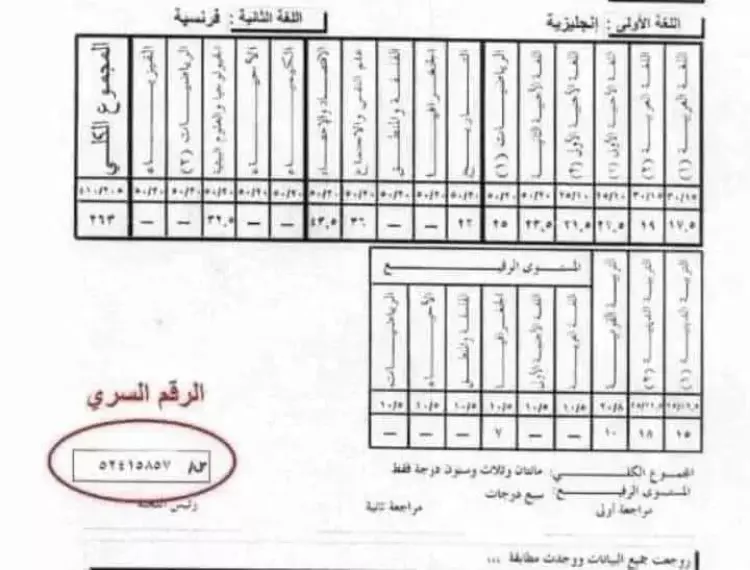 اللغة الأولى : إنجليزية اللغة الثانية : فرنسية
اللغة العربية (١) اللغة العربية (٢) اللغة الأجنبية الأولى (١) اللغة الأجنبية الأولى (٢) اللغة الأجنبية الثانية الرياضيات (١) التاريخ الجغرافيا الفلسفة والمنطق علم النفس والاجتماع الاقتصاد والإحصاء الكيمياء الأحياء الجيولوجيا والعلوم البيئية الرياضيات (٢) الفيزياء المجموع الكلي
٣٠/١٥ ٣٠/١٥ ٢٥/١٠ ٢٥/١٠ ٥٠/٢٠ ٥٠/٢٠ ٥٠/٢٠ ٥٠/٢٠ ٥٠/٢٠ ٥٠/٢٠ ٥٠/٢٠ ٥٠/٢٠ ٥٠/٢٠ ٥٠/٢٠ ٥٠/٢٠ ٥٠/٢٠ ٤١٠/٢٠٥
١٧,٥ ١٩ ٢١,٥ ٢٣,٥ ٢٥ ٢٢ — — ٣٦ ٤٣,٥ — — ٣٢,٥ — — ٢٦٣
المستوى الرفيع
التربية الدينية (١) التربية الدينية (٢) التربية القومية اللغة العربية اللغة الأجنبية الأولى الجغرافيا الفلسفة والمنطق الأحياء الرياضيات
٢٠/٨ ١٠/٥ ١٠/٥ ١٠/٥ ١٠/٥ ١٠/٥ ١٠/٥
١٥ ١٨ ١٠ — — ٧ — — —
الرقم السري
٥٢٤١٥٨٥٧
المجموع الكلي: مائتان وثلاث وستون درجة فقط
المستوى الرفيع: سبع درجات
مراجعة أولى مراجعة ثانية رئيس اللجنة
روجعت جميع البيانات ووجدت مطابقة ...